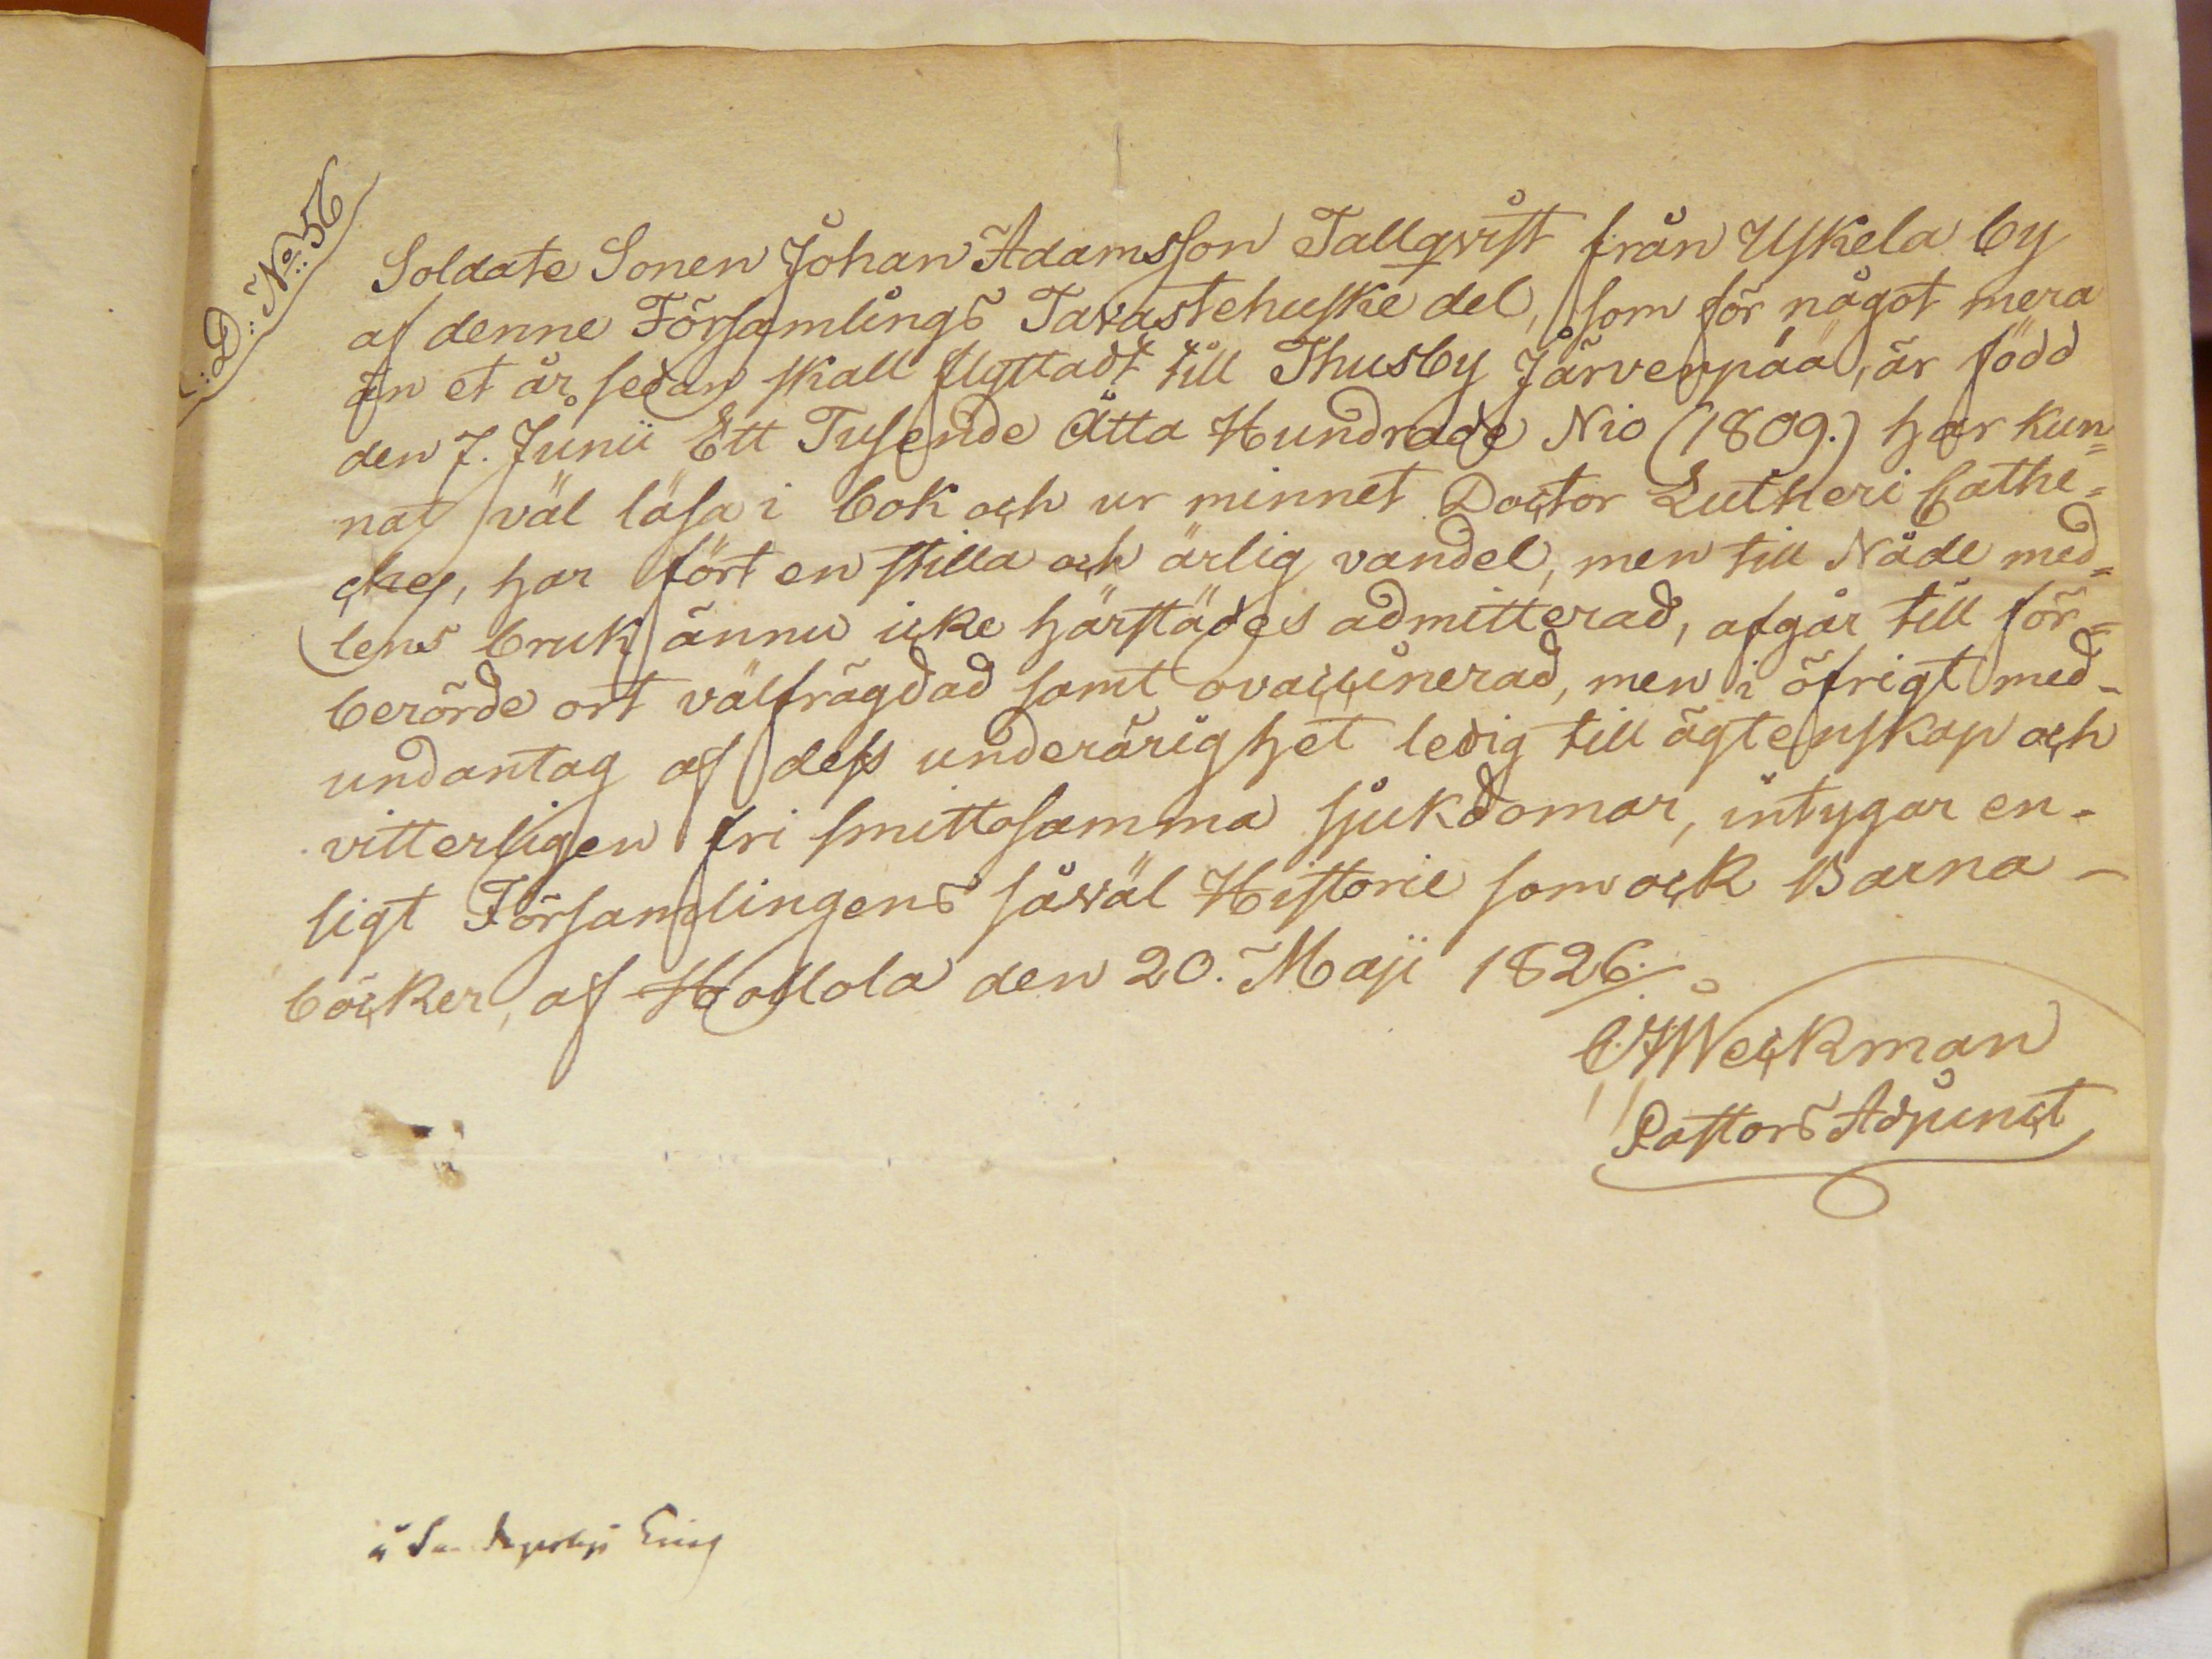 :D: No: 56
Soldate Sonen Johan Adamsson Tallqvist från Uskela by
af denne Församlings Tavastehuske del, som för något mera
än et år sedan skall flyttadt till Thusby Järvenpää, är född
den 7. Junii Ett Tusende Åtta Hundrade Nio (1809.) har kun=
nat väl läsa i bok och ur minnet Doctor Lutheri Cathe=
ches, har fört en stilla och ärlig vandel, men till Nåde med=
lens bruk ännu icke härstädes admitterad, afgår till för=
berörde ort välfrägdad samt ovaccinerad, men i öfrigt med-
undantag af dess underårighet ledig till ägtenskap och
vitterligen fri smittosamma sjukdomar, intygar en-
ligt Församlingens såväl Historie som ock Barna-
böcker, af Hollola den 20. Maji 1826.
C J Weckman
Pastors Adjunct